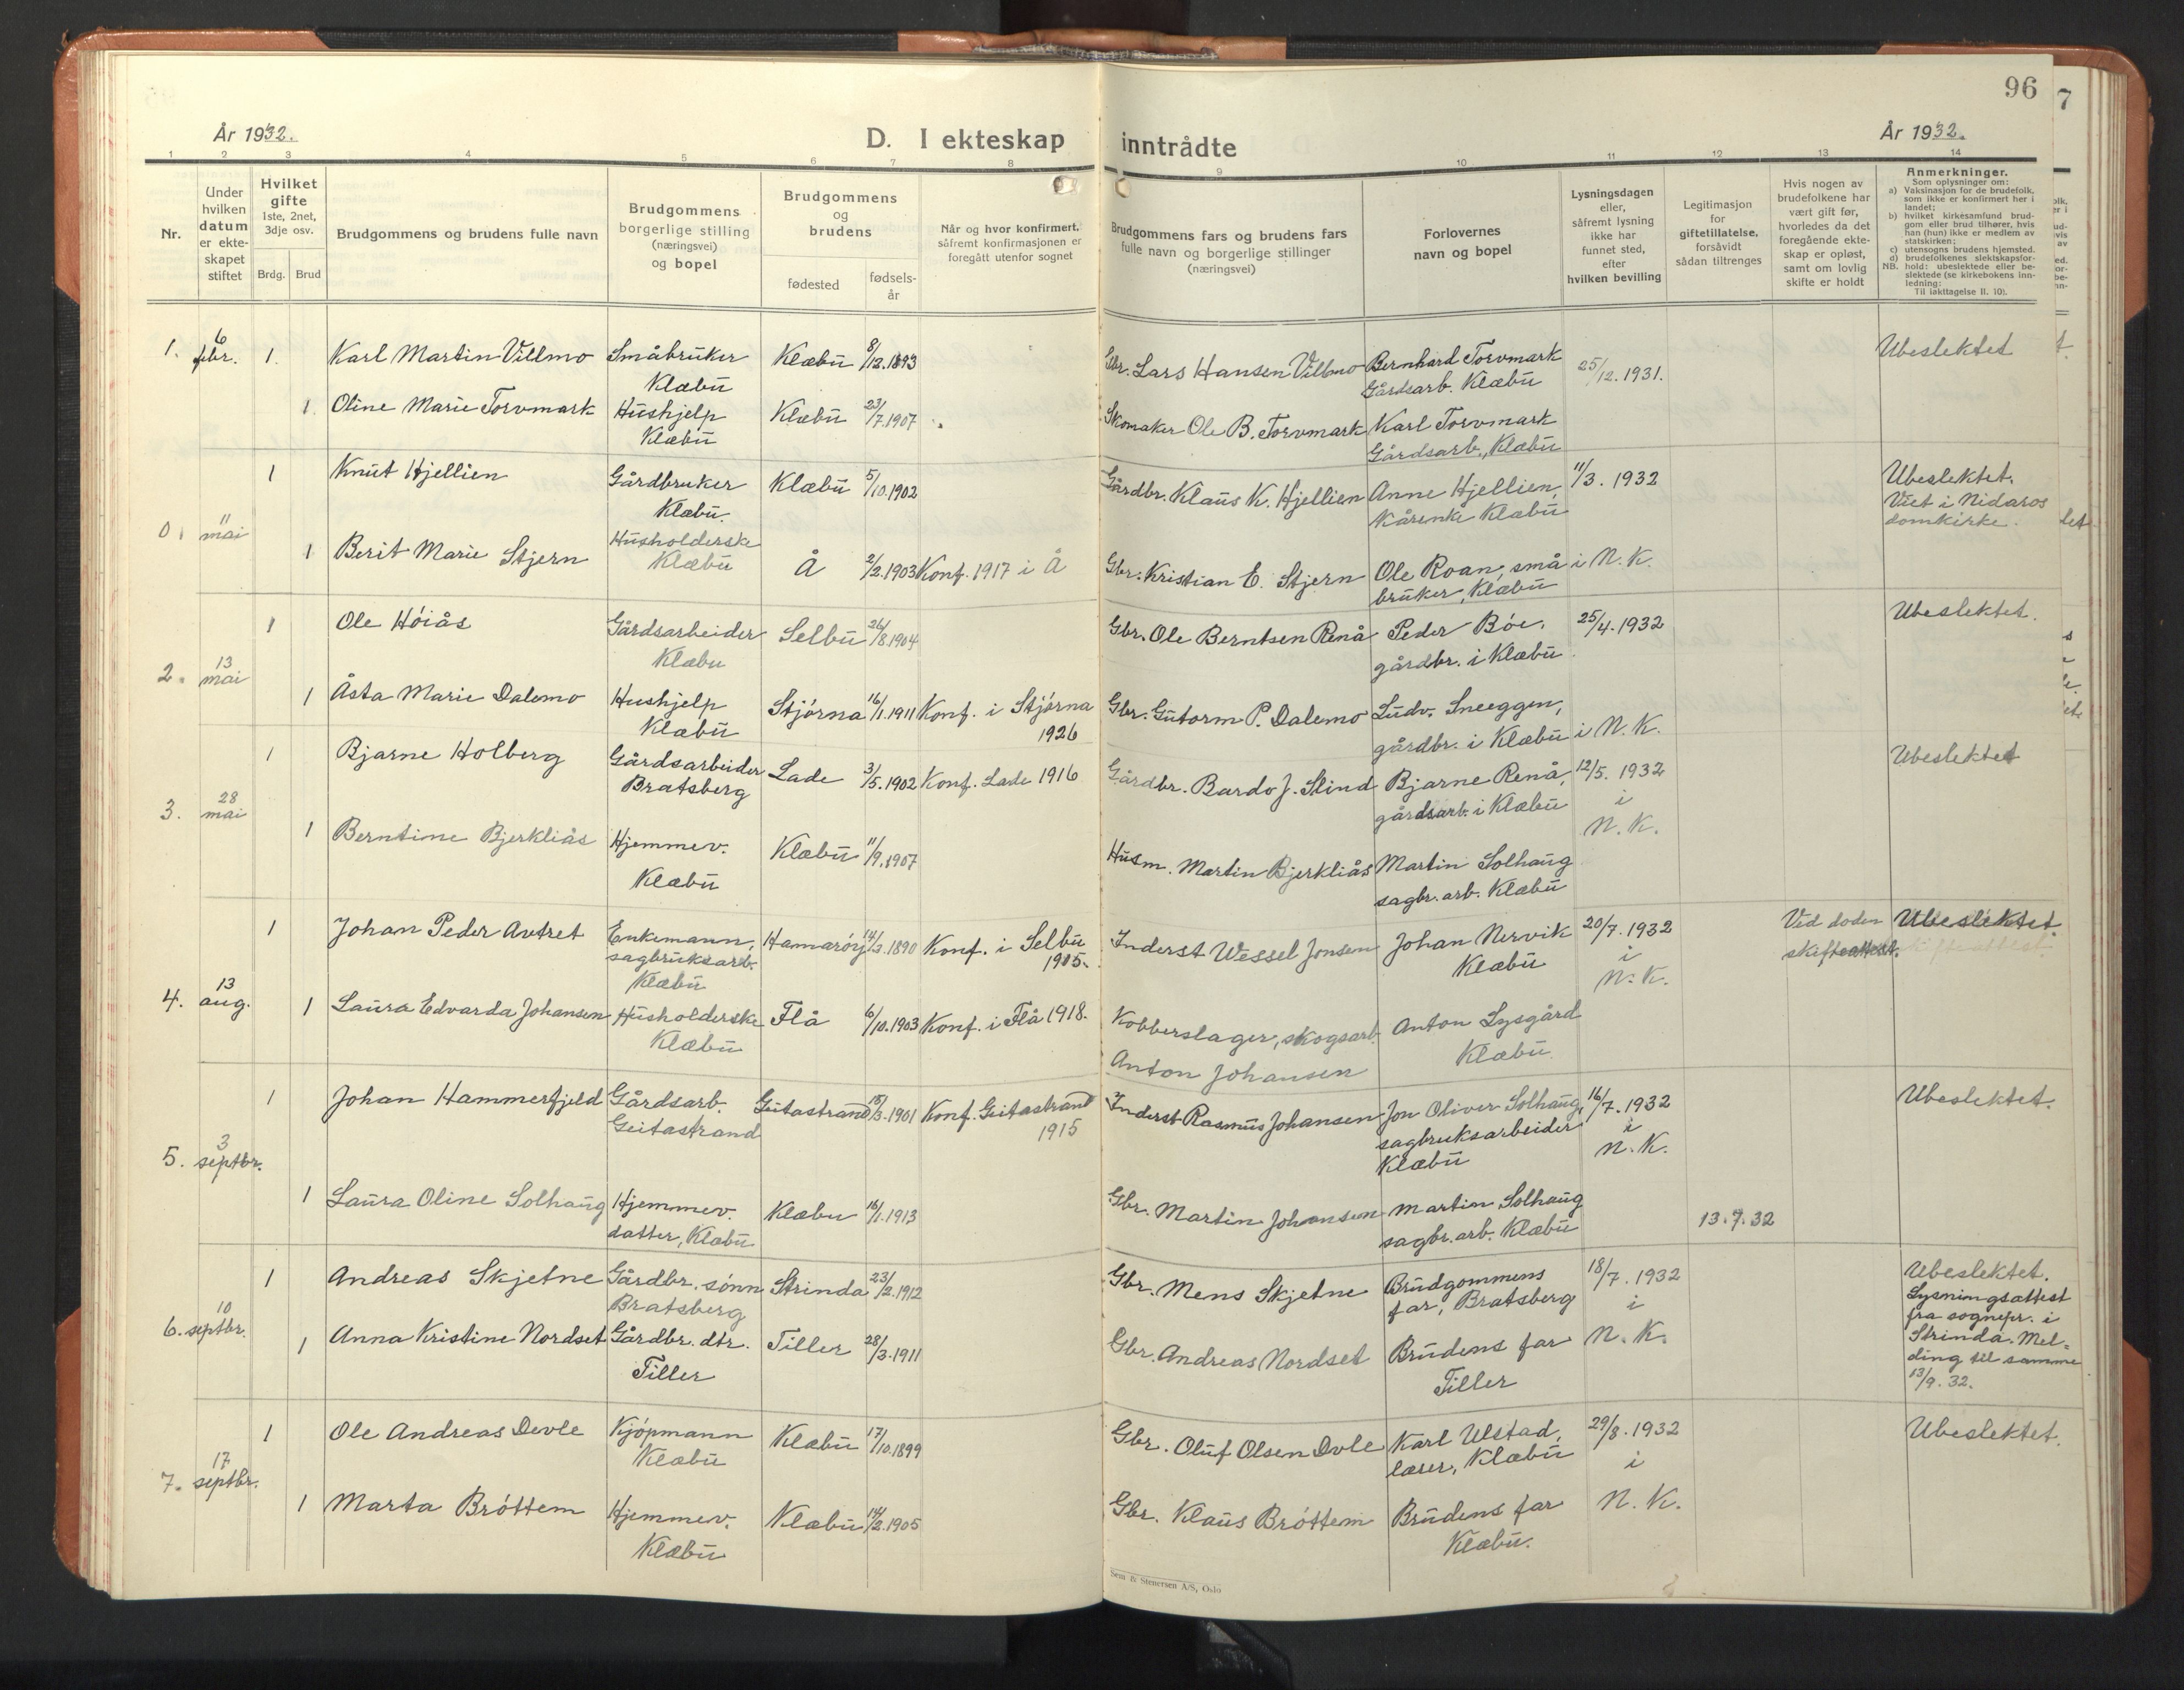 96
7
År 1932.
D. I ekteskap inntrådte
År 1932.
1 2 3 4 5 6 7 8 9 10 11 12 13 14
Nr.
Under
hvilken
datum
er ekte-
skapet
stiftet
Hvilket
gifte
1ste, 2net,
3dje osv.
Brdg. Brud
Brudgommens og brudens fulle navn
Brudgommens
borgerlige stilling
(næringsvei)
og bopel
Brudgommens
og
brudens
fødested
fødsels-
år
Når og hvor konfirmert,
såfremt konfirmasjonen er
foregått utenfor sognet
Brudgommens fars og brudens fars
fulle navn og borgerlige stillinger
(næringsvei)
Forlovernes
navn og bopel
Lysningsdagen
eller,
såfremt lysning
ikke har
funnet sted,
efter
hvilken bevilling
Legitimasjon
for
giftetillatelse,
forsåvidt
sådan tiltrenges
Hvis nogen av
brudefolkene har
vært gift før,
hvorledes da det
foregående ekte-
skap er opløst,
samt om lovlig
skifte er holdt
Anmerkninger.
Som oplysninger om:
a) Vaksinasjon for de brudefolk,
som ikke er konfirmert her i
landet;
b) hvilket kirkesamfund brud-
gom eller brud tilhører, hvis
han (hun) ikke er medlem av
statskirken;
c) utensogns brudens hjemsted.
d) brudefolkenes slektskapsfor-
NB. hold: ubeslektede eller be-
slektede (se kirkebokens inn-
ledning:
Til iakttagelse II. 10).
1. 6 febr. 1. Karl Martin Villmo Småbruker Klæbu 8/12.1893 Gbr. Lars Hansen Villmo Bernhard Torvmark 25/12.1931. Ubeslektet
Klæbu Gårdsarb. Klæbu
1. Oline Marie Torvmark Hushjelp Klæbu 23/7.1907 Skomaker Ole B. Torvmark Karl Torvmark
Klæbu Gårdsarb., Klæbu
1 Knut Hjellien Gårdbruker Klæbu 5/10.1902 Gårdbr. Klaus K. Hjellien Anne Hjellien, 11/3. 1932 Ubeslektet.
Klæbu. Kårenke Klæbu Viet i Nidaros
0. 11 mai domkirke.
1 Berit Marie Stjern Husholderske Å 2/2.1903 Konf. 1917 i Å Gbr. Kristian E. Stjern Ole Roan, små i N. K.
Klæbu bruker, Klæbu
1 Ole Höiås Gårdsarbeider Selbu 26/8.1904 Gbr. Ole Berntsen Renå Peder Böe, 25/4.1932 Ubeslektet.
Klæbu gårdbr. i Klæbu
2. 13 mai
1 Åsta Marie Dalemo Hushjelp Stjörna 16/1.1911 Konf. i Stjörna Gbr. Gutorm P. Dalemo Ludv. Sneeggen,
Klæbu 1926 gårdbr. i Klæbu i N. K.
1 Bjarne Holberg Gårdsarbeider Lade 3/5.1902 Konf. Lade 1916 Gårdbr. Bardo J. Slind Bjarne Renå, 12/5. 1932 Ubeslektet
Bratsberg gårdsarb. i Klæbu i
3. 28 mai N. K.
1 Berntine Bjerkliås Hjemmev. Klæbu 11/9.1907 Husm. Martin Bjerkliås Martin Solhaug
Klæbu sagbr. arb. Klæbu
1 Johan Peder Avtret Enkemann, Hamaröy 14/3.1890 Konf. i Selbu Inderst Wessel Jonsen Johan Nervik 20/7.1932 Ved döden Ubeslektet.
sagbruksarb. 1905. Klæbu i skifteattest.
Klæbu N. K.
4. 13 aug. 1 Laura Edvarda Johansen Husholderske Flå 6/10.1903 Konf. i Flå 1918. Kobberslager, skogsarb. Anton Lysgård
Klæbu Anton Johansen Klæbu
1 Johan Hammerfjeld Gårdsarb. Geitastrand 15/3.1901 Konf. Geitastrand Inderst Rasmus Johansen Jon Oliver Solhaug, 16/7.1932 Ubeslektet.
Geitastrand 1915 sagbruksarbeider i
5. 3 septbr. Klæbu N. K.
1 Laura Oline Solhaug Hjemmev. Klæbu 16/1.1913 Gbr. Martin Johansen Martin Solhaug 13.7.32
datter, Klæbu sagbr. arb. Klæbu
1 Andreas Skjetne Gårdbr. sönn Strinda 23/2.1912 Gbr. Mens Skjetne Brudgommens 18/7.1932 Ubeslektet.
Bratsberg far, Bratsberg i Lysningsattest
6. 10 septbr. fra sognepr. i
1 Anna Kristine Nordset Gårdbr. dtr. Tiller 28/3.1911 Gbr. Andreas Nordset Brudens far N. K. Strinda. Mel-
Tiller Tiller ding til samme
13/9.32.
1 Ole Andreas Devle Kjöpmann Klæbu 17/10.1899 Gbr. Oluf Olsen Dvle Karl Ulstad, 29/8.1932 Ubeslektet.
Klæbu lærer, Klæbu i
7. 17 septbr.
1 Marta Bröttem Hjemmev. Klæbu 14/2.1905 Gbr. Klaus Bröttem Brudens far N. K.
Klæbu Klæbu.
Sem & Stenersen A/S, Oslo